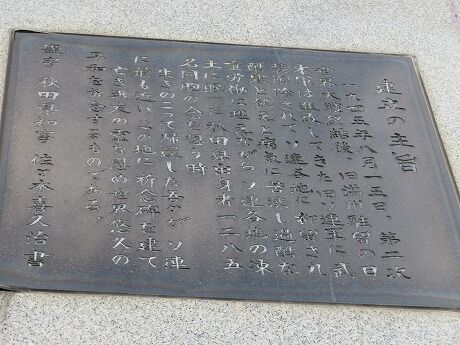 建立の主旨
一九四五年八月一五日、第二次
世界大戦終結後、旧満州駐留の日
本軍は進攻してきた旧ソ連軍に武
装解除されソ連各地に抑留され
酷寒と飢えと病気に苦悩し過酷な
重労働に堪えながらソ連各地の凍
土に眠った秋田県出身者一二八五
名同胞の今を思う時
生きのこって帰還した吾々が、ソ連
に最も近いこの地に祈念碑を建て
亡き戦友の霊を慰め世界悠久の
平和を祈念するものである。
題字 秋田県知事 佐々木喜久治書